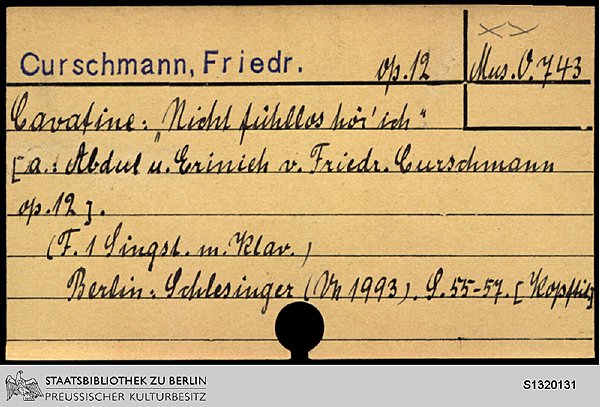 Curschmann, Friedr. op. 12 Mus. O. 743
Cavatine: „Nicht fühllos hör' ich“
[a.: Abdul u. Erinieh v. Friedr. Curschmann
op. 12].
(F. 1 Singst. m. Klav.)
Berlin: Schlesinger (Vn 1993). S. 55-57. [Kopftit]
STAATSBIBLIOTHEK ZU BERLIN
PREUSSISCHER KULTURBESITZ
S1320131